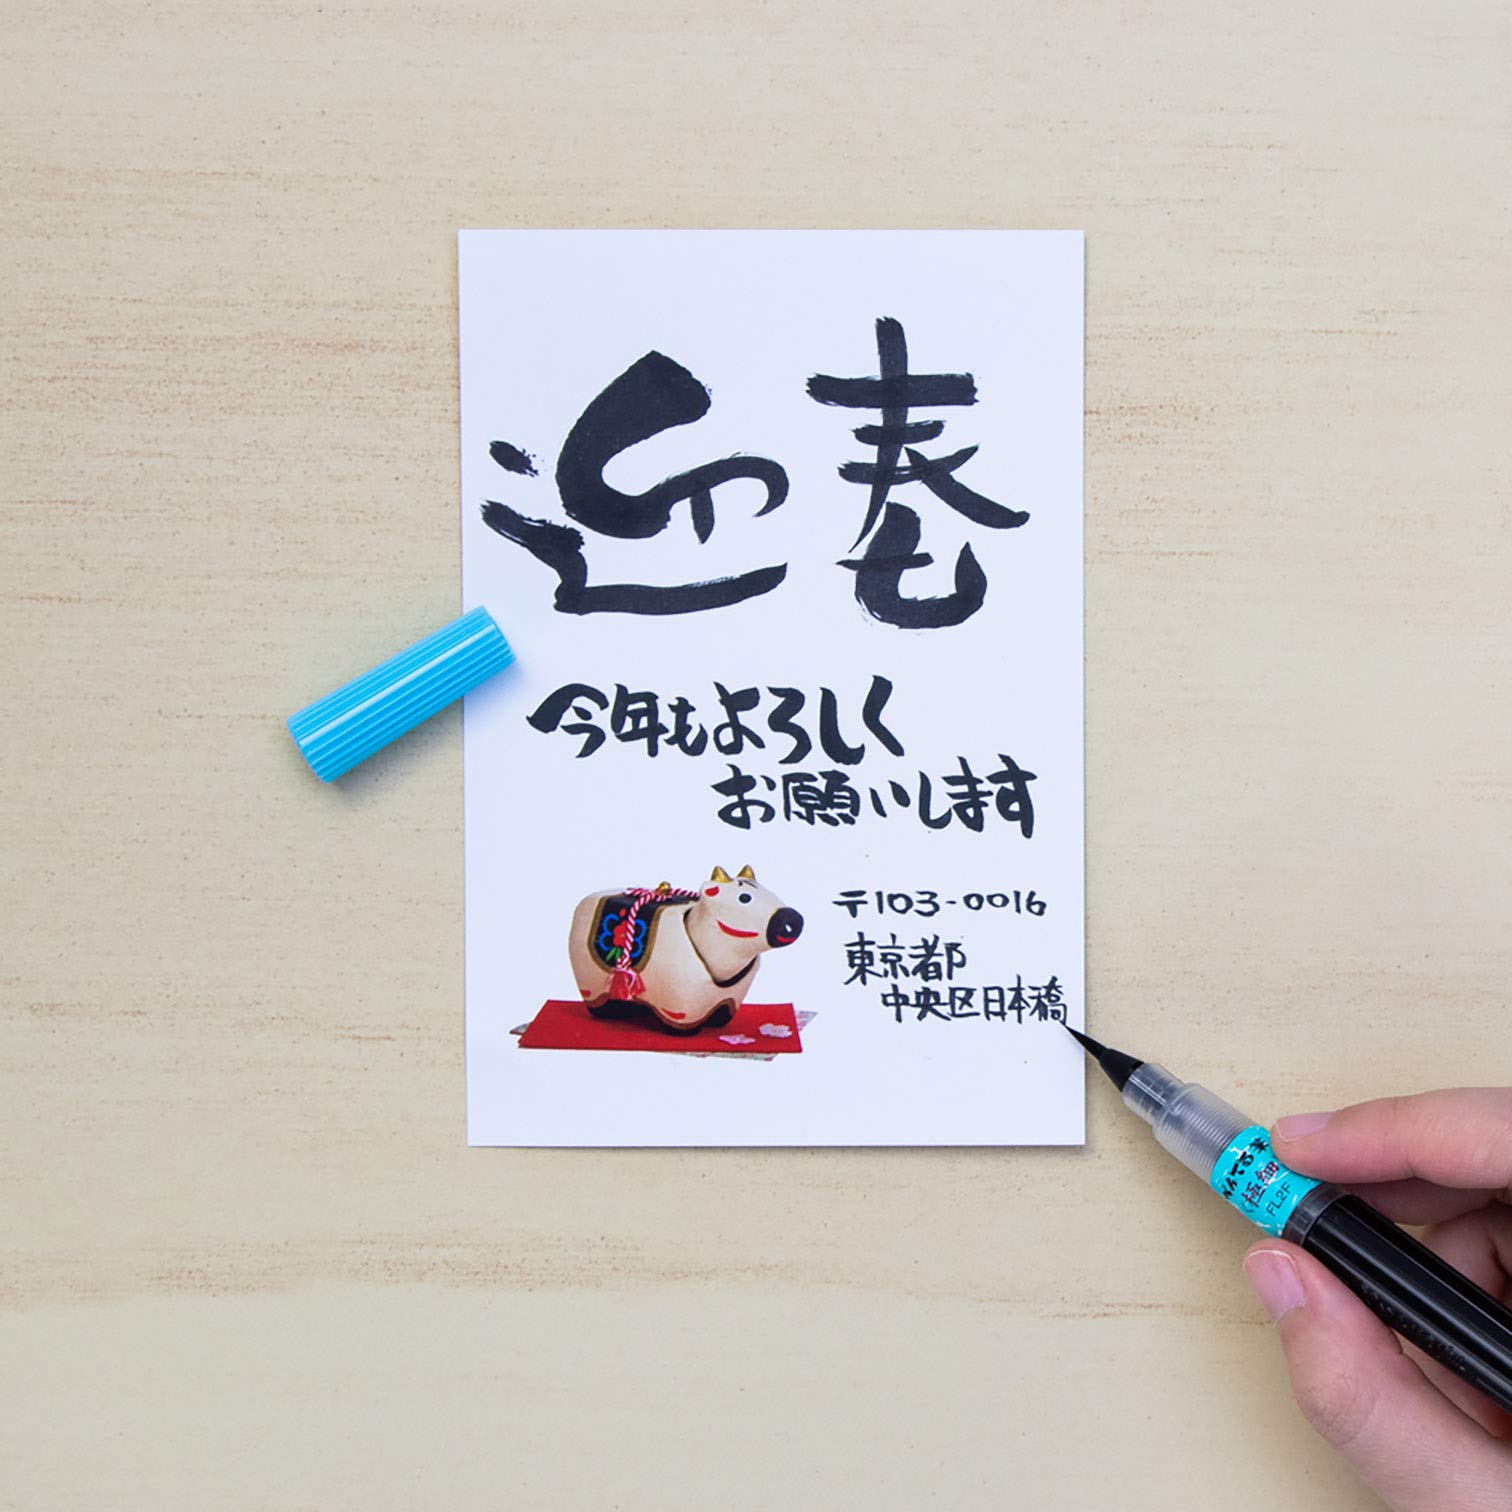 迎春
今年もよろしく
お願いします
〒103-0016
東京都
中央区日本橋
ぺんてる筆
〈極細〉
FL2F